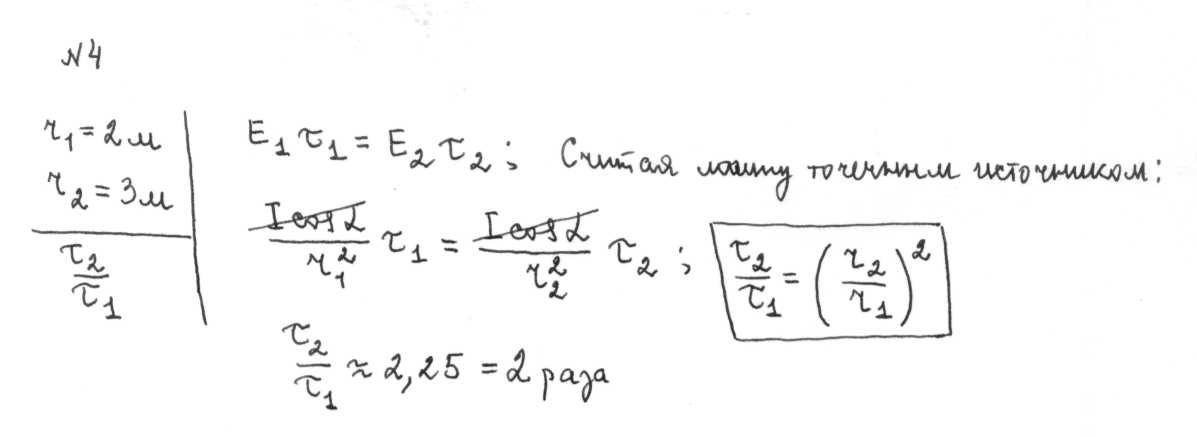 N4
r₁ = 2 м
r₂ = 3 м
τ₂/τ₁
E₁τ₁ = E₂τ₂; Считая лампу точечным источником:
I cos α/r₁² τ₁ = I cos α/r₂² τ₂; τ₂/τ₁ = (r₂/r₁)²
τ₂/τ₁ ≈ 2,25 = 2 раза